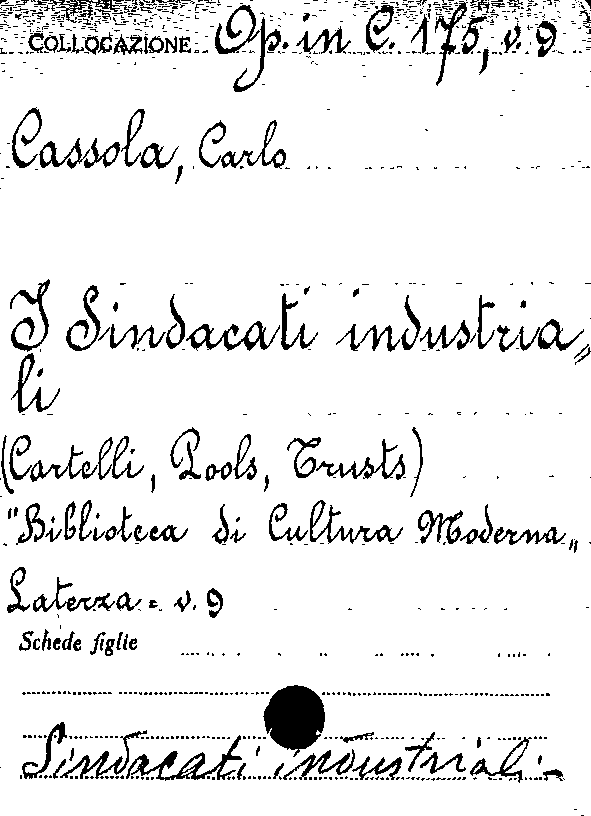 COLLOCAZIONE Op. in C. 175, v. 9
Cassola, Carlo
I Sindacati industria„
li
(Cartelli, Pools, Trusts)
"Biblioteca di Cultura Moderna„
Laterza = v. 9
Schede figlie
Sindacati industriali -